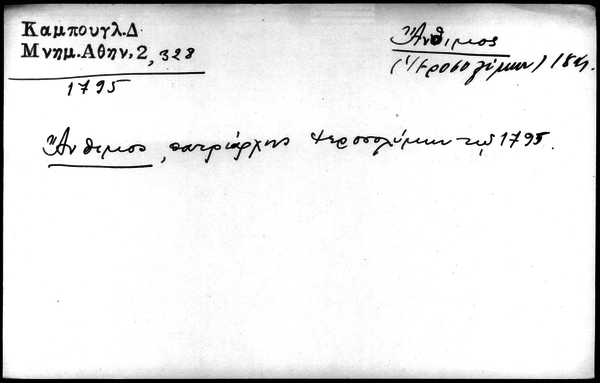 Καμπουγλ.Δ.
Μνημ.Αθην. 2, 328
1795
Ἄνθιμος
(Ἱεροσολύμων) 18η.
Ἄνθιμος, πατριάρχης Ἱεροσολύμων τῷ 1795.